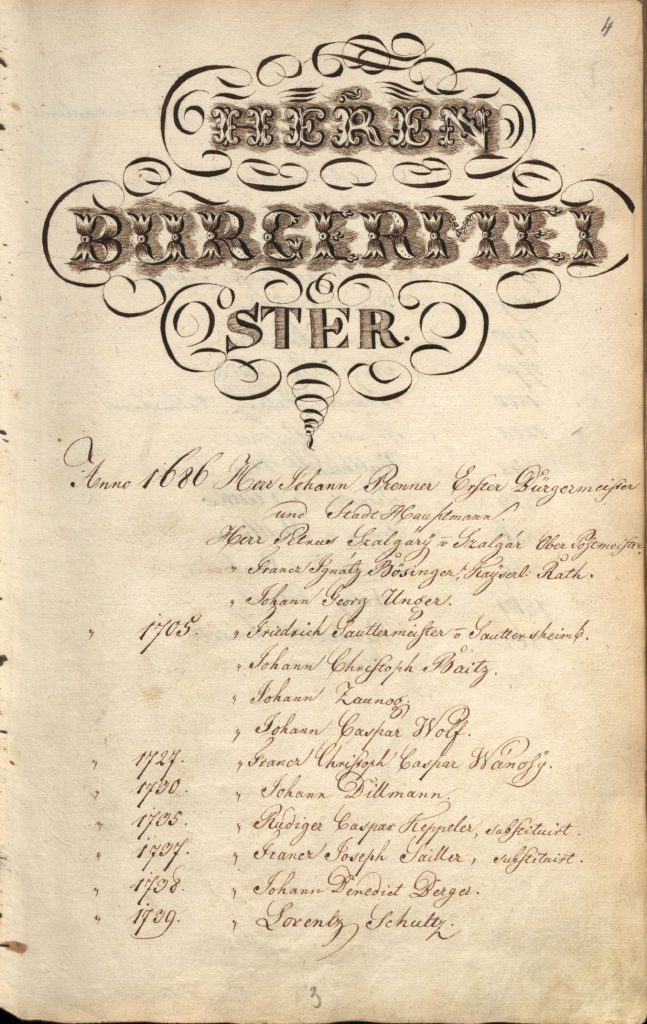 4
HERREN
BURGERMEI
STER.
Anno 1686 Herr Johann Prenner Erster Bürgermeister
und Stadt Hauptmann.
Herr Petrus Szalgary v Szalgár Ober Postmeister,
„ Francz Ignátz Bösinger, Kayserl: Rath.
„ Johann Georg Unger.
„ 1705. „ Friedrich Sauttermeister v Sauttersheimb.
„ Johann Christoph Baitz.
„ Johann Zaunog
„ Johann Caspar Wolf.
„ 1727. „ Francz Christoph Caspar Wánosÿ.
„ 1730. „ Johann Dillmann.
„ 1735. „ Rudiger Caspar Keppeler, substituirt.
„ 1737. „ Francz Joseph Sailler, substituirt.
„ 1738. „ Johann Benedict Berger.
„ 1739. „ Lorentz Schultz.
3